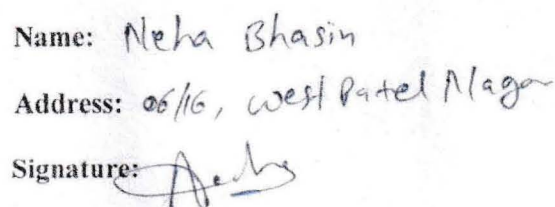 Name: Neha Bhasin
Address: 06/16, West Patel Nagar
Signature: